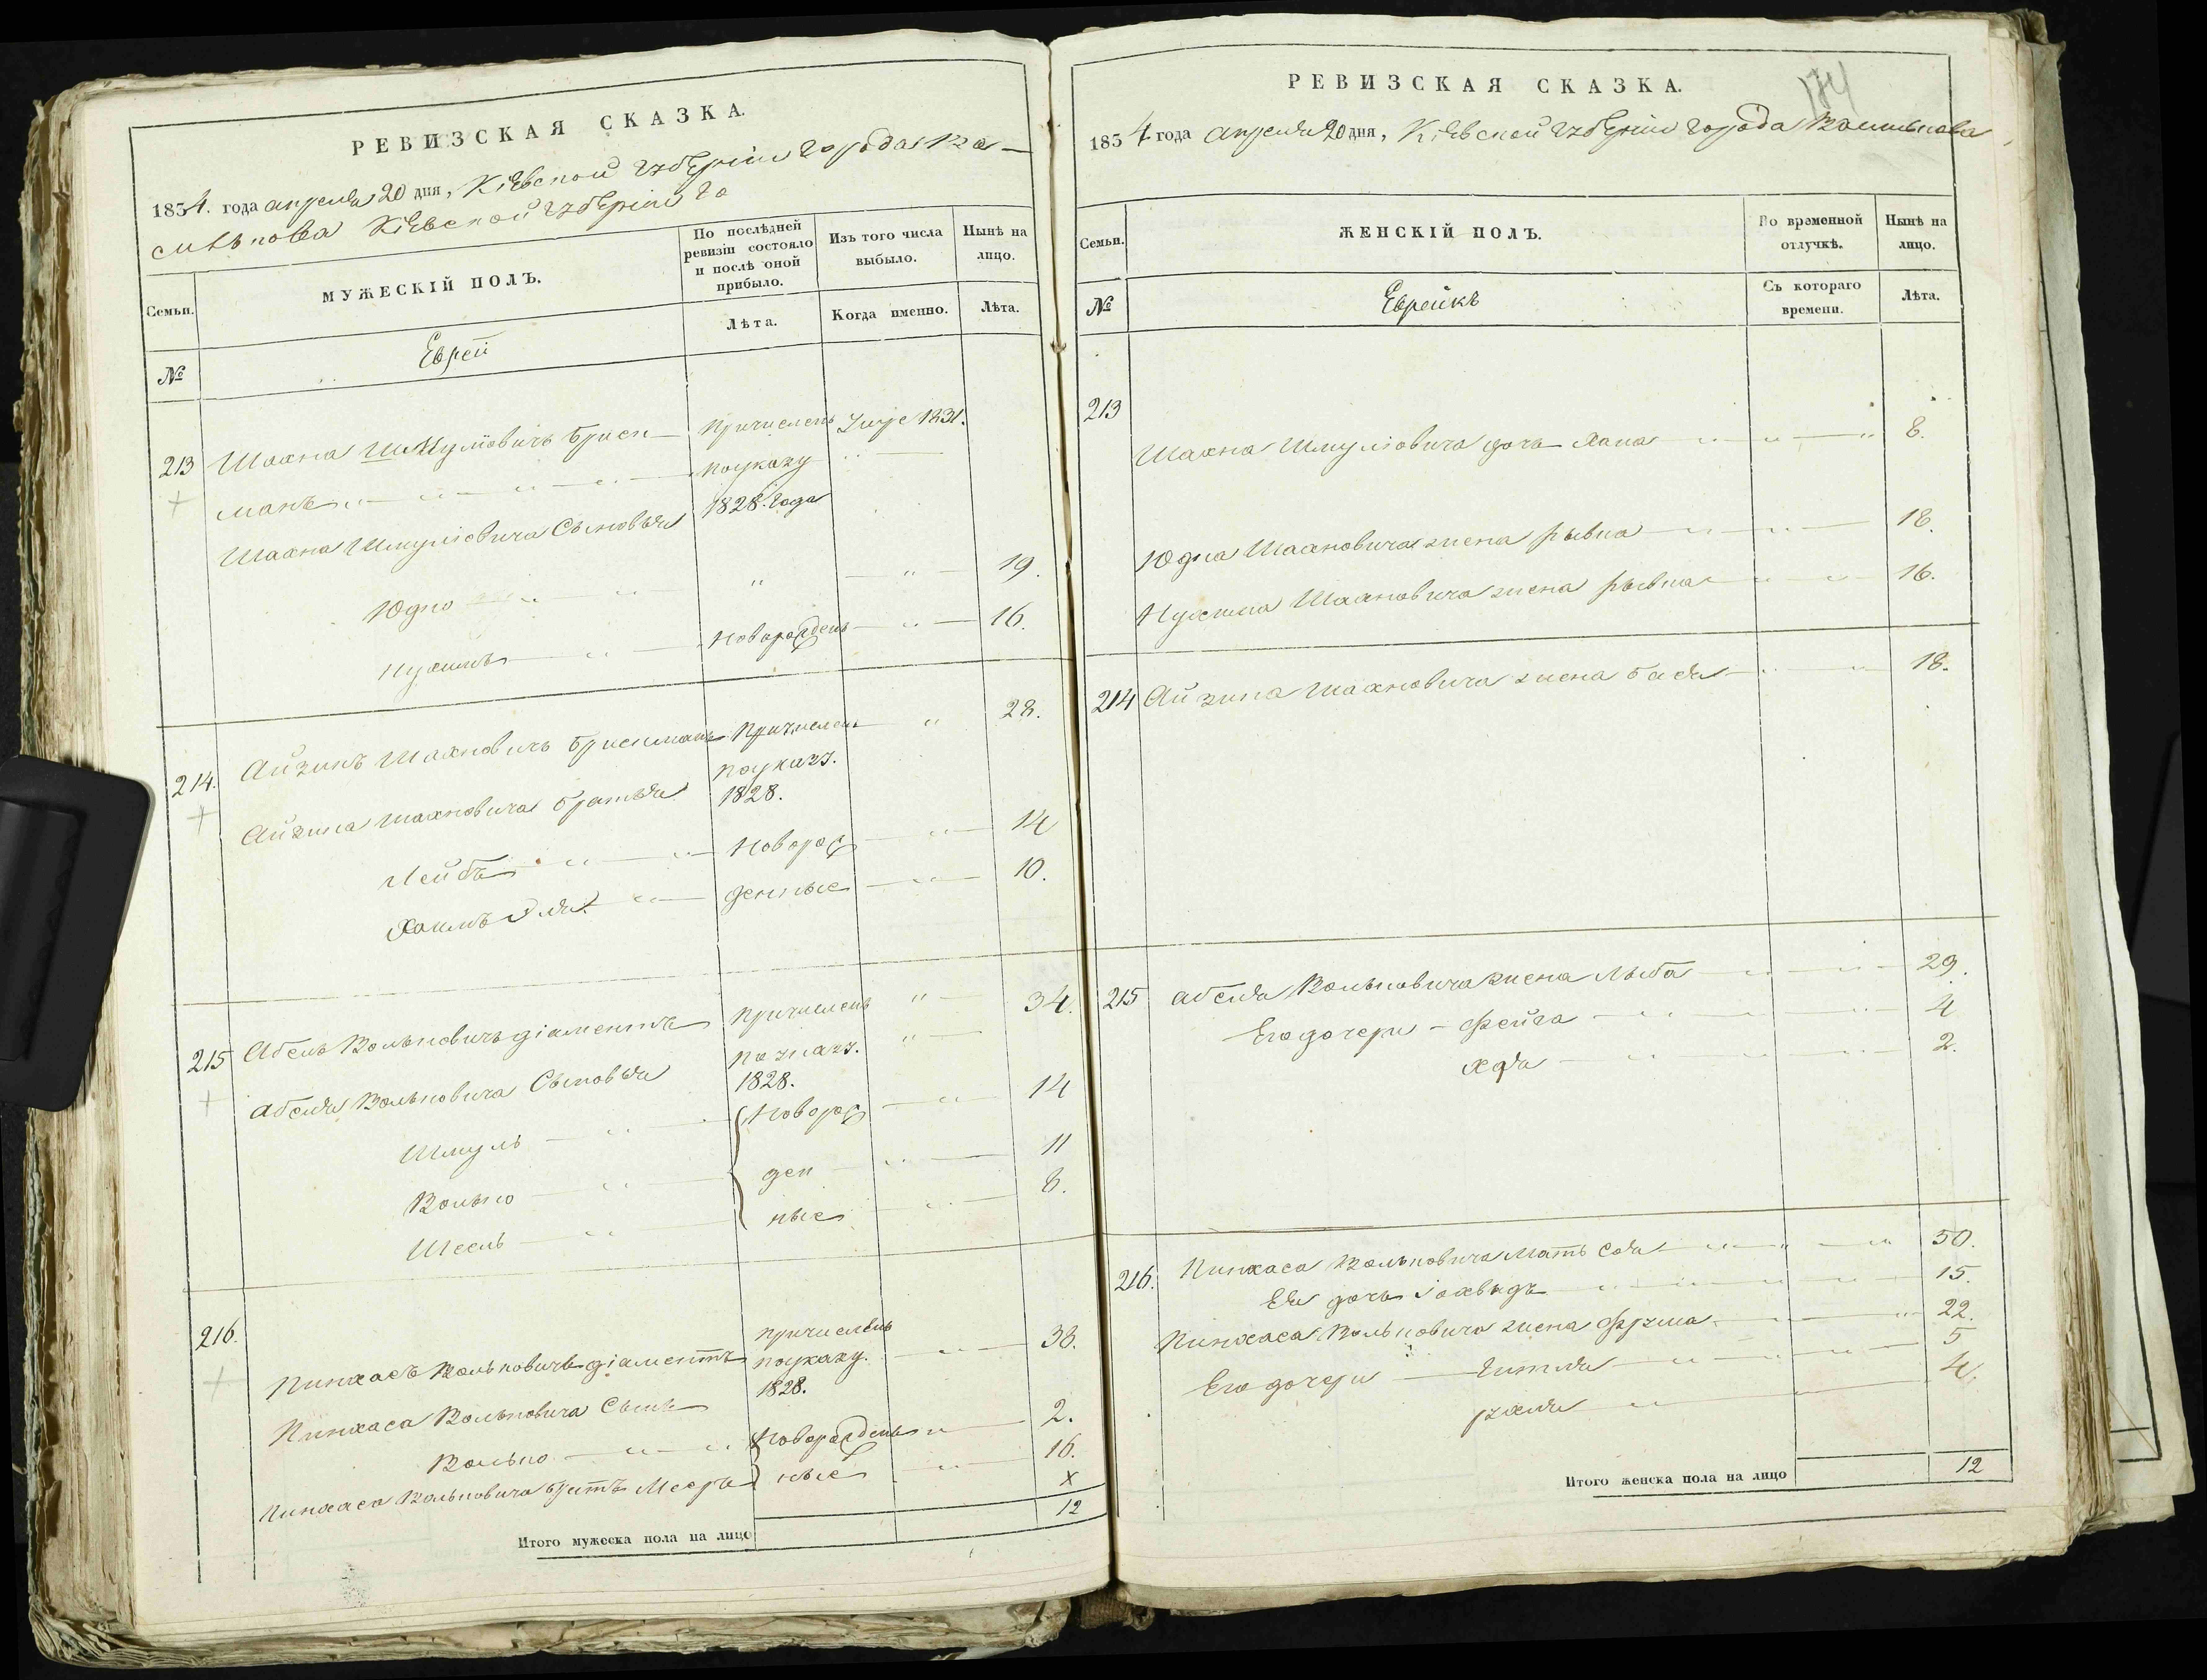 РЕВИЗСКАЯ СКАЗКА.
1834. года апреля 20 дня, Кіевской Губерніи города Ва-
силькова Кіевской Губерніи го
Семьи.
МУЖЕСКІЙ ПОЛЪ.
По послѣдней ревизіи состояло и послѣ оной прибыло.
Изъ того числа выбыло.
Нынѣ на лицо.
№
Еврей
Лѣта.
Когда именно.
Лѣта.
213 Шахна Шмуліовичь Брис Причисленъ 1831.
манъ по указу
Шахна Шмуліовича Сыновья 1828. года
Юдко 19.
Нухимъ Новорожденъ 16.
214. Айзикъ Шахновичъ Брисманъ Причисленъ 28.
по указу.
Айзика Шахновича братья 1828.
Лейба Новорож 14
Хаимъ денные 10.
215 Абель Вольковичь Діаментъ Причисленъ 34.
по указу.
Абеля Вольковича Сыновья 1828.
Шмуль Новорож 14
Волько ден 11
ные 8.
216. Пинхасъ Вольковичь Діаментъ Причисленъ 38.
по указу.
1828.
Пинхаса Вольковича Сынъ
Волько Новорожден 2.
Пинхаса Вольковича братъ Мееръ ные 16.
х
Итого мужеска пола на лицо 12
174
РЕВИЗСКАЯ СКАЗКА.
1834 года апреля 20 дня, Кіевской Губерніи города Василькова
Семьи.
ЖЕНСКІЙ ПОЛЪ.
Во временной отлучкѣ.
Нынѣ на лицо.
№
Еврейкъ
Съ котораго времени.
Лѣта.
213
Шахна Шмуліовича дочь Хана 8.
Юдка Шахновича жена Рывка 18.
Нухима Шахновича жена Рывка 16.
214 Айзика Шахновича жена Бася 18.
215 Абеля Вольковича жена 29.
Его дочери - Фейга 4
2.
216. Пинхаса Вольковича Мать 50.
Ея дочь 15.
Пинхаса Вольковича жена Фрума 22.
Его дочери Гитля 5
4.
Итого женска пола на лицо 12